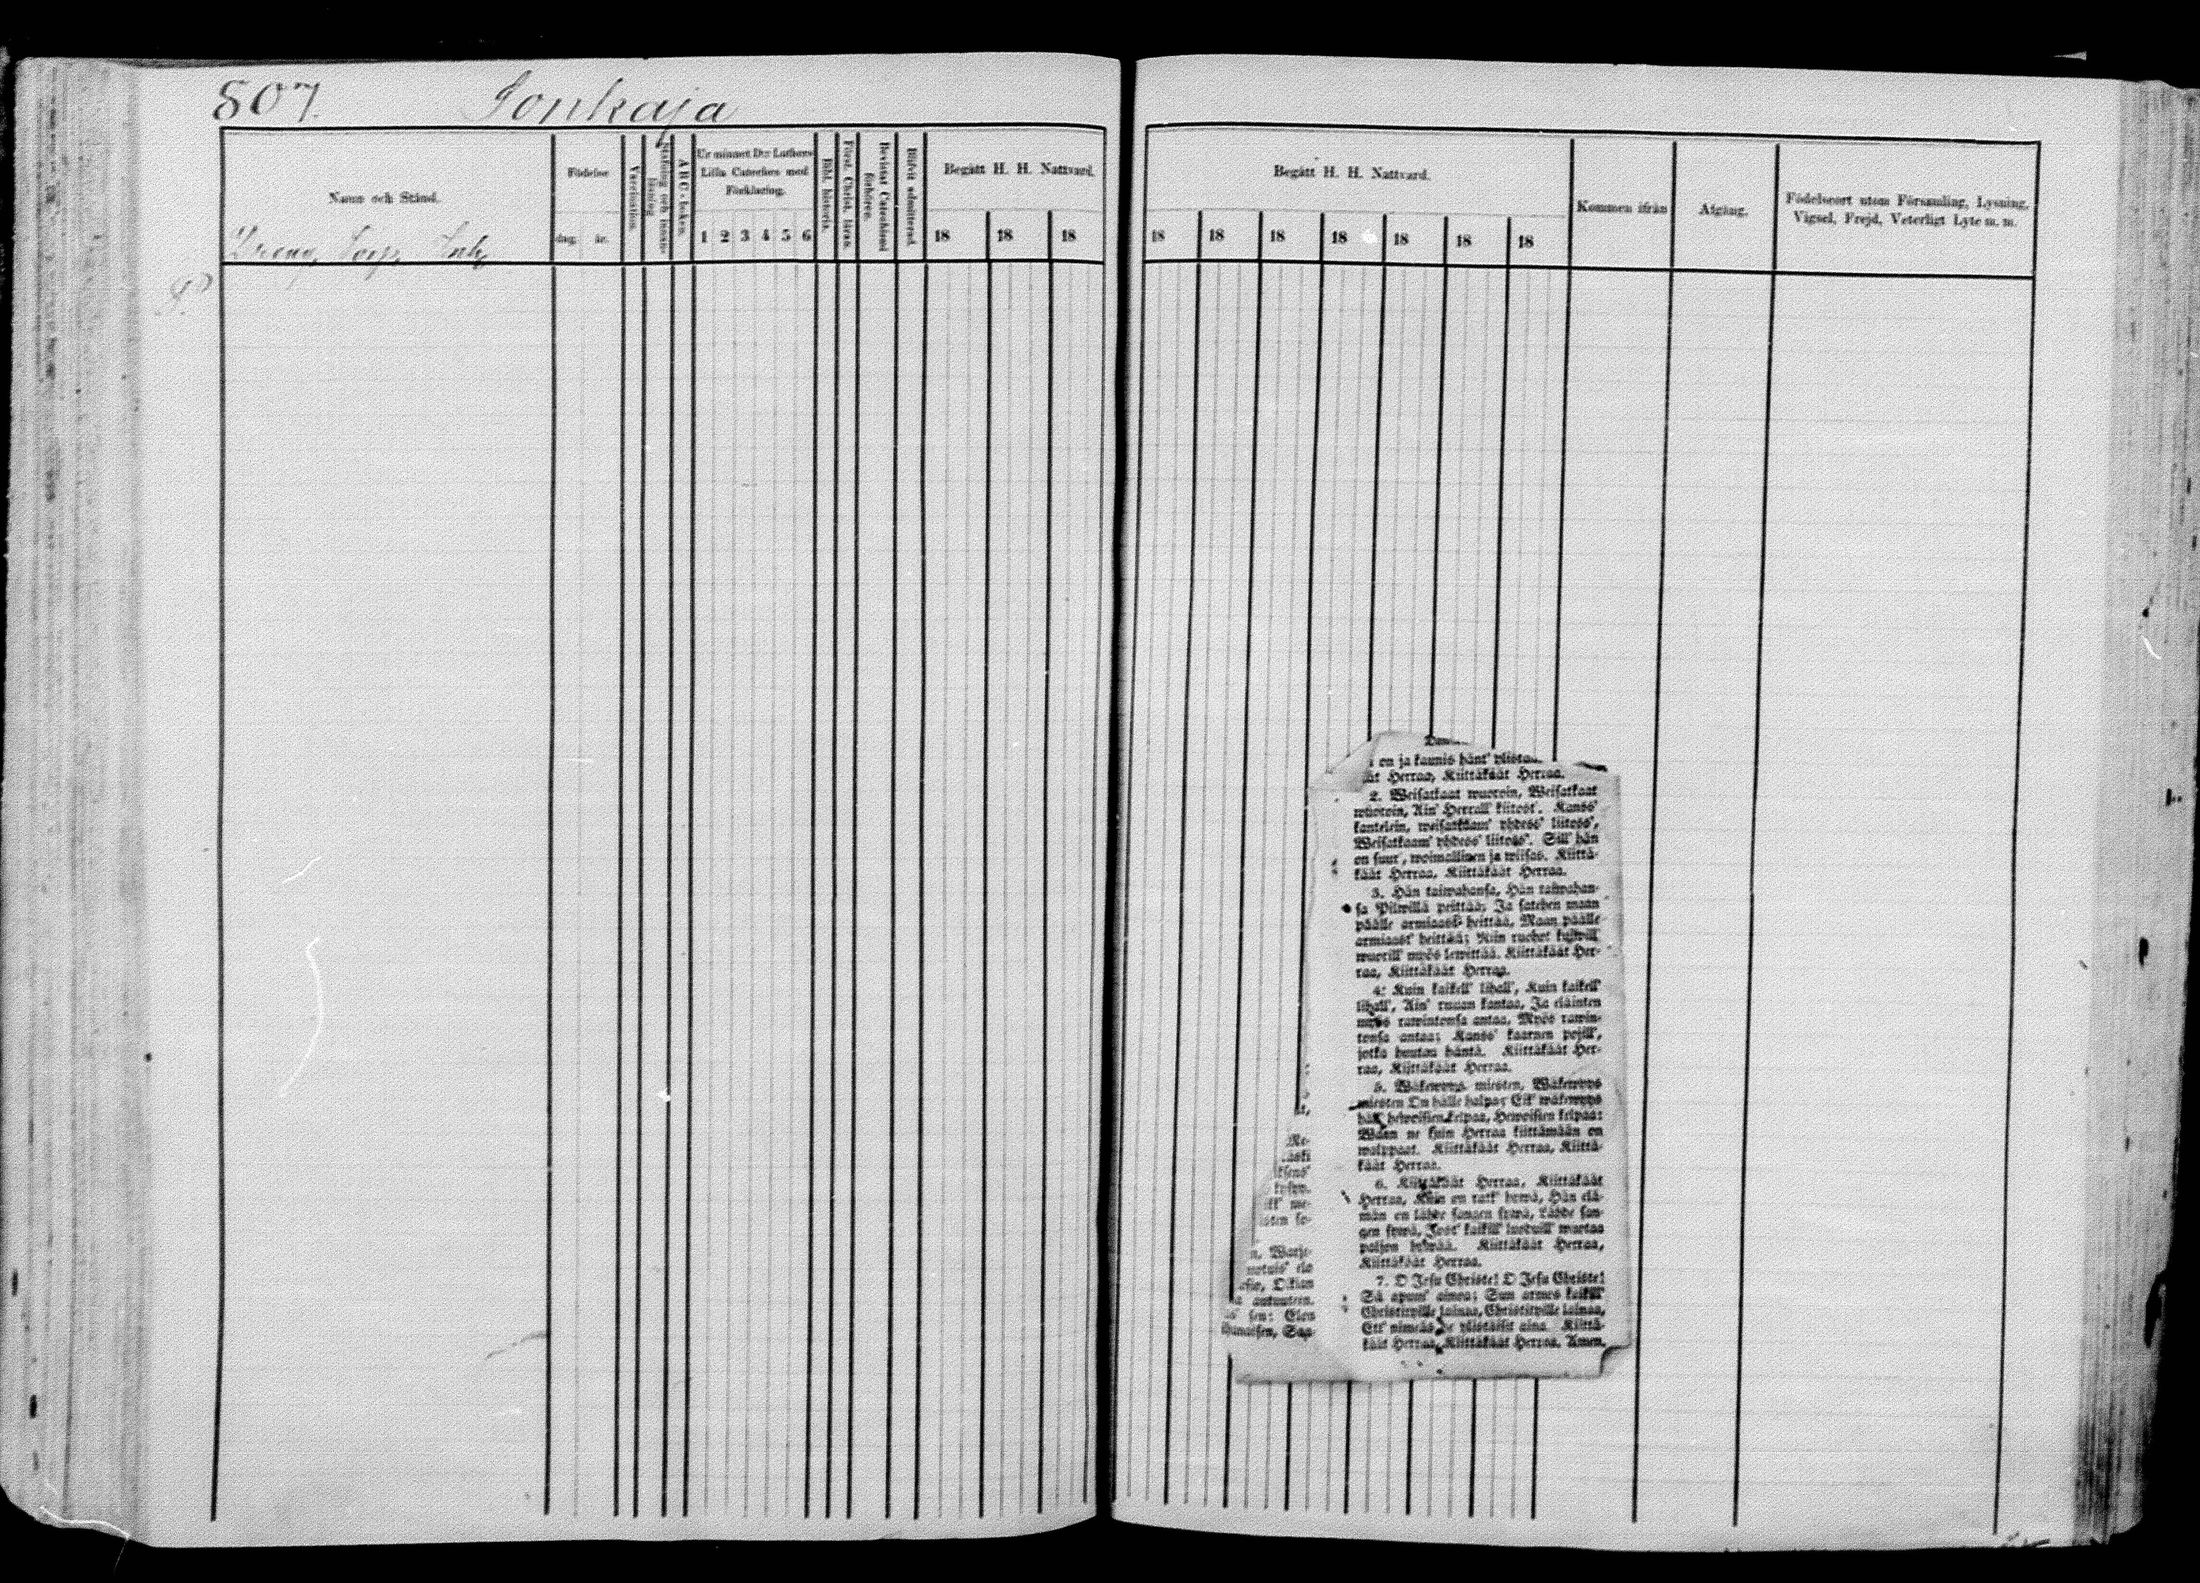 807.
Sonkaja
Namn och Stånd.
Födelse
dag. år.
Vaccination.
Stafning och Innanläsning
A B C-boken.
Ur minnet D:r Luthers
Lilla Cateches med
Förklaring.
1 2 3 4 5 6
Bibl. historia.
Först. Christ. läran.
Bevistat Catechismi
förhören.
Blifvit admitterad.
Begått H. H. Nattvard.
18 18 18
Begått H. H. Nattvard.
18 18 18 18 18 18 18
Kommen ifrån
Afgång.
Födelseort utom Församling, Lysning,
Vigsel, Frejd, Veterligt Lyte m. m.
Dreng Torp. Inh.
en ja kaunis hänt' ylistää
ät Herraa, Kiittäkäät Herraa.
2. Weisatkaat wuoroin, Weisatkaat
wuoroin, Ain' Herrall' kiitost'. Kanss'
kantelein, weisatkaam' yhdess' liitoss',
Weisatkaam' yhdess' liitoss'. Sill' hän
en suur', woimallinen ja wiisas. Kiittä-
käät Herraa, Kiittäkäät Herraa.
3. Hän taiwahansa, Hän taiwahan-
sa Pilwillä peittää; Ja satehen maan
päälle armiaast' heittää, Maan päälle
armiaast' heittää; Niin ruohot
wuorill' myös lewittää. Kiittäkäät Her-
raa, Kiittäkäät Herraa.
4. Kuin kaikell' lihall', Kuin kaikell'
lihall', Ain' ruuan kantaa, Ja eläinten
myös rawintonsa antaa, Myös rawin-
tonsa antaa; Kanss' kaarneen pojill',
jotka huutaa häntä. Kiittäkäät Her-
raa, Kiittäkäät Herraa.
5. Wäkewyys miesten, Wäkewyys
miesten On hälle halpa; Eik' wäkewyys
häll' hewoisien kelpaa, Hewoisien kelpaa:
Waan ne kuin Herraa kiittämään on
walppaat. Kiittäkäät Herraa, Kiittä-
käät Herraa.
6. Kiittäkäät Herraa, Kiittäkäät
Herraa, Kuin on ratk' hywä, Hän elä-
män on lähde sangen sywä, Lähde san-
gen sywä, Jost' kaikill' luoduill' wuotaa
paljon hywää. Kiittäkäät Herraa,
Kiittäkäät Herraa.
7. O Jesu Christe! O Jesu Christe!
Sä apum' ainoa; Sun armos kaikill'
Christityille lainaa, Christityille lainaa,
Ett' nimeäs he ylistäisit aina. Kiittä-
käät Herraa, Kiittäkäät Herraa. Amen.